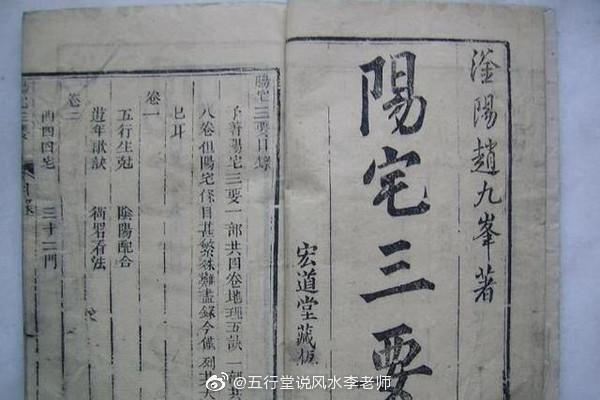 滏陽趙九峯著
陽宅三要
宏道堂藏板
陽宅三要目錄
予著陽宅三要一部共四卷地理五訣一部共
八卷但陽宅條目甚繁殊難盡錄今僅列大
巳耳
卷一
五行生剋 陰陽配合
遊年歌訣 衙署看法
卷二
西四宅 三十二門
陽宅三要 目錄
@五行堂说风水李老师